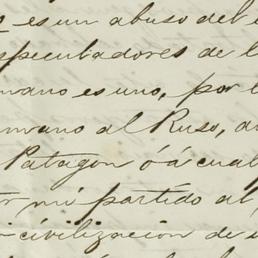 es un abuso del
especuladores de l
mano es uno, por l
mano al Ruso, a
Patagon ó á cual
mi partido al
civilizacion de